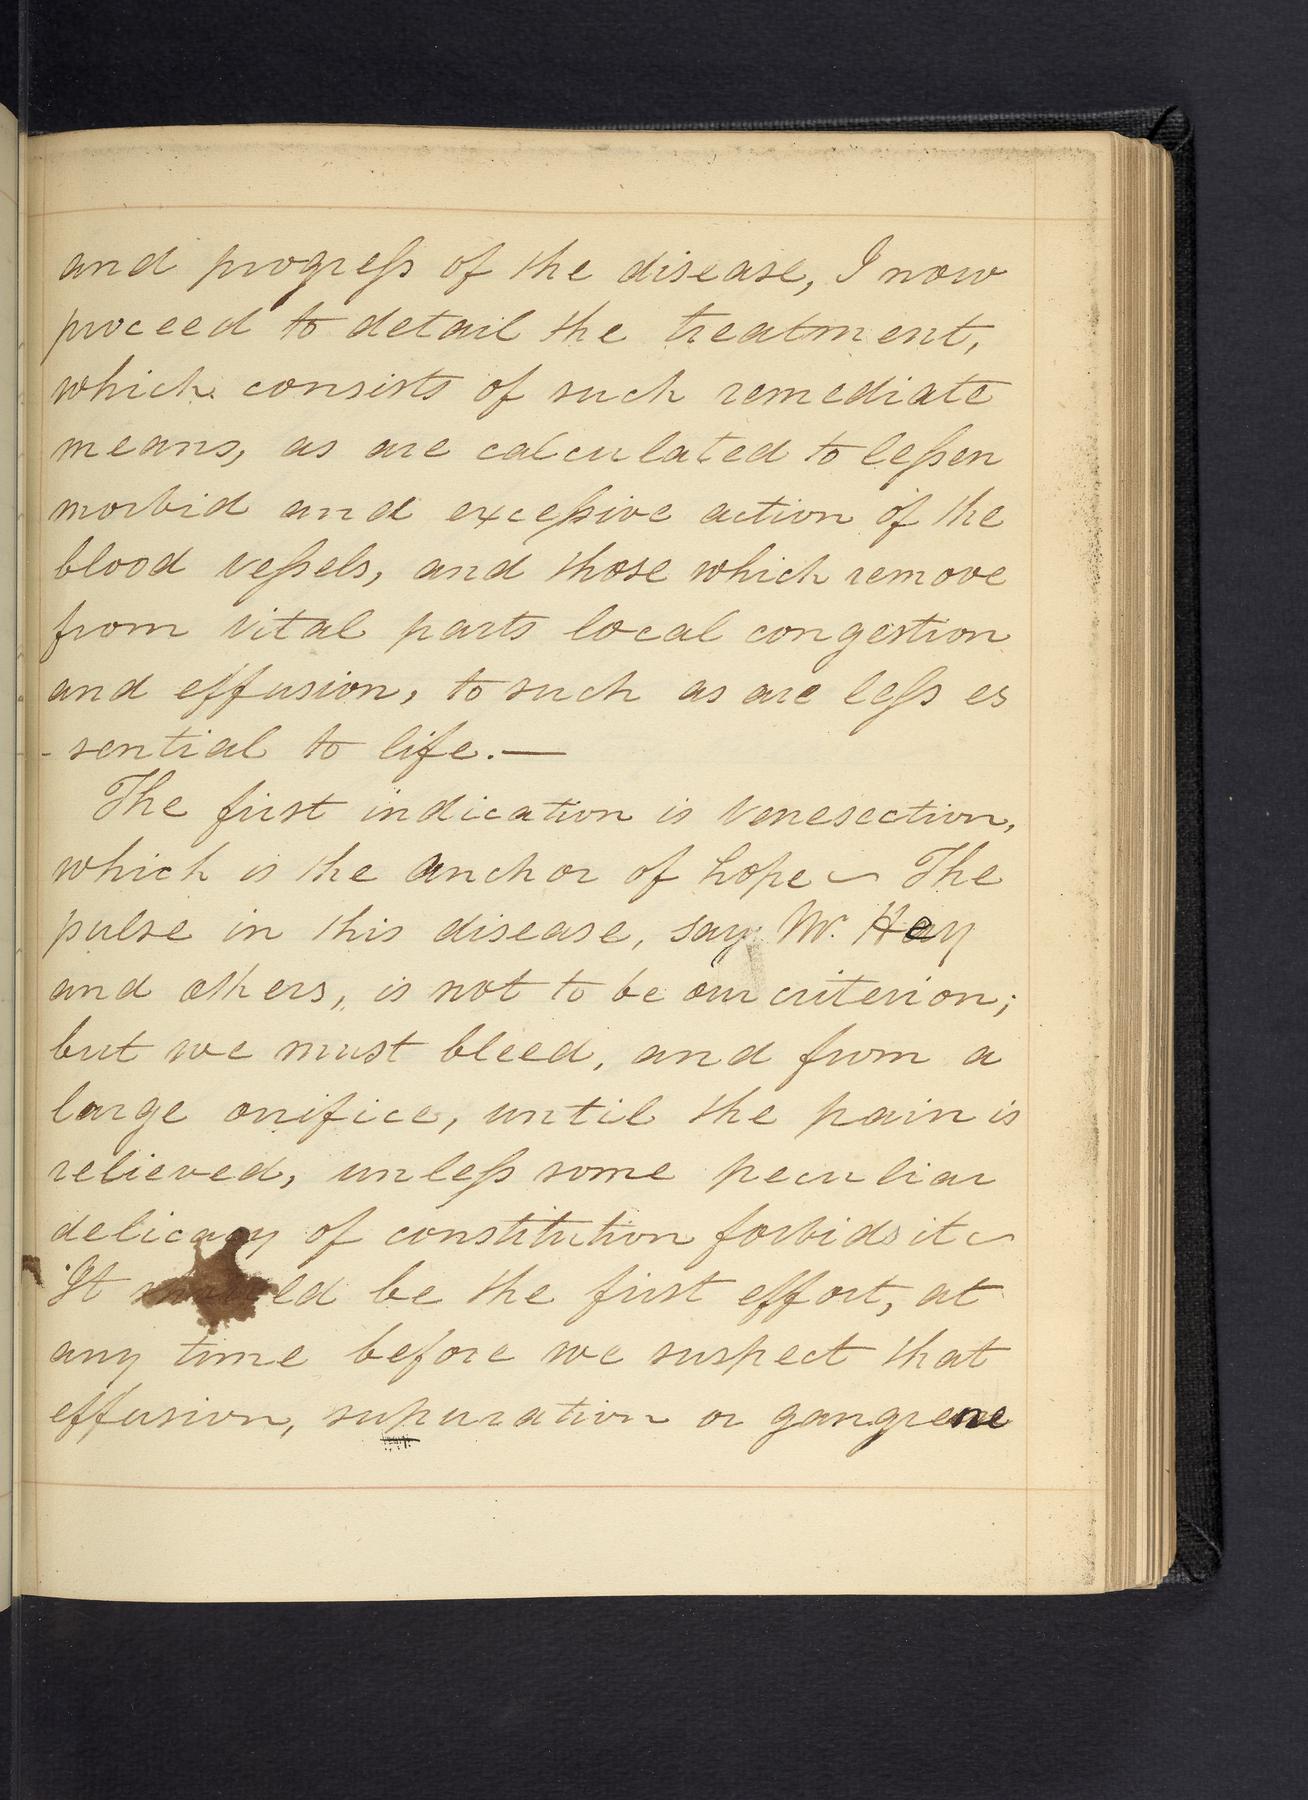 and progreſs of the disease, I now
proceed to detail the treatment,
which consists of such remediate
means, as are calculated to leſsen
morbid and exceſsive action of the
blood veſsels, and those which remove
from vital parts local congestion
and effusion, to such as are leſs es
-sential to life.—
The first indication is venesection,
which is the anchor of hope ~ The
pulse in this disease, say Mr. Hey
and others, is not to be our criterion;
but we must bleed, and from a
large orifice, until the pain is
relieved, unleſs some peculiar
delicacy of constitution forbids it ~
It should be the first effort, at
any time before we suspect that
effusion, supuration or gangrene